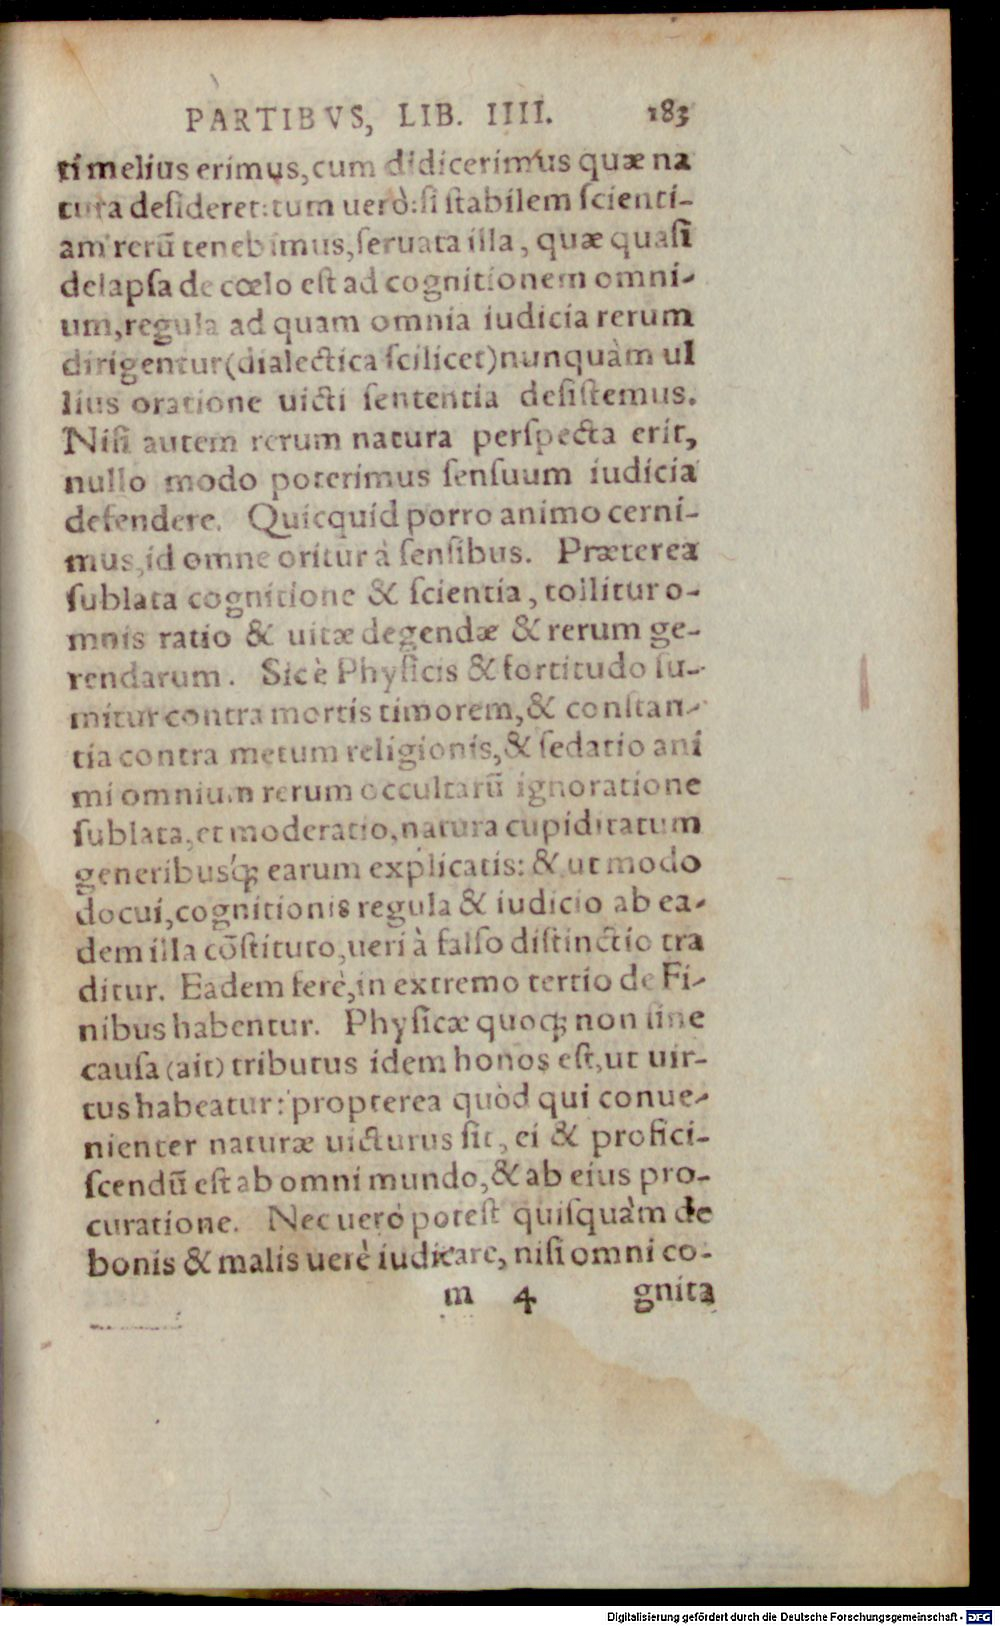 PARTIBVS, LIB. IIII. 183
ti melius erimus, cum didicerimus quæ na
tura desideret: tum uerò: si stabilem scienti-
am rerũ tenebimus, seruata illa, quæ quasi
delapsa de cœlo est ad cognitionem omni-
um, regula ad quam omnia iudicia rerum
dirigentur (dialectica scilicet) nunquàm ul
lius oratione uicti sententia desistemus.
Nisi autem rerum natura perspecta erit,
nullo modo poterimus sensuum iudicia
defendere. Quicquid porro animo cerni-
mus, id omne oritur à sensibus. Præterea
sublata cognitione & scientia, tollitur o-
mnis ratio & uitæ degendæ & rerum ge-
rendarum. Sic è Physicis & fortitudo su-
mitur contra mortis timorem, & constan-
tia contra metum religionis, & sedatio ani
mi omnium rerum occultarũ ignoratione
sublata, et moderatio, natura cupiditatum
generibusq́; earum explicatis: & ut modo
docui, cognitionis regula & iudicio ab ea-
dem illa cõstituto, ueri à falso distinctio tra
ditur. Eadem ferè, in extremo tertio de Fi-
nibus habentur. Physicæ quoq; non sine
causa (ait) tributus idem honos est, ut uir-
tus habeatur: propterea quòd qui conue-
nienter naturæ uicturus sit, ei & profici-
scendũ est ab omni mundo, & ab eius pro-
curatione. Nec uerò potest quisquàm de
bonis & malis uerè iudicare, nisi omni co-
m 4 gnita
Digitalisierung gefördert durch die Deutsche Forschungsgemeinschaft - DFG